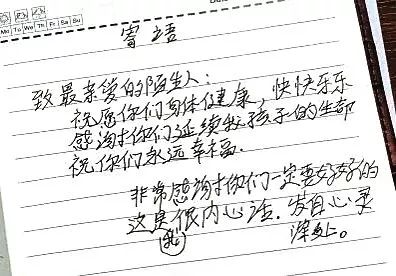 Mo Tu We Th Fr Sa Su
寄语
致最亲爱的陌生人：
祝愿你们身体健康，快快乐乐
感谢你们延续我孩子的生命
祝你们永远幸福.
非常感谢你们一定要好好的
这是我很内心话.发自心灵
深处。